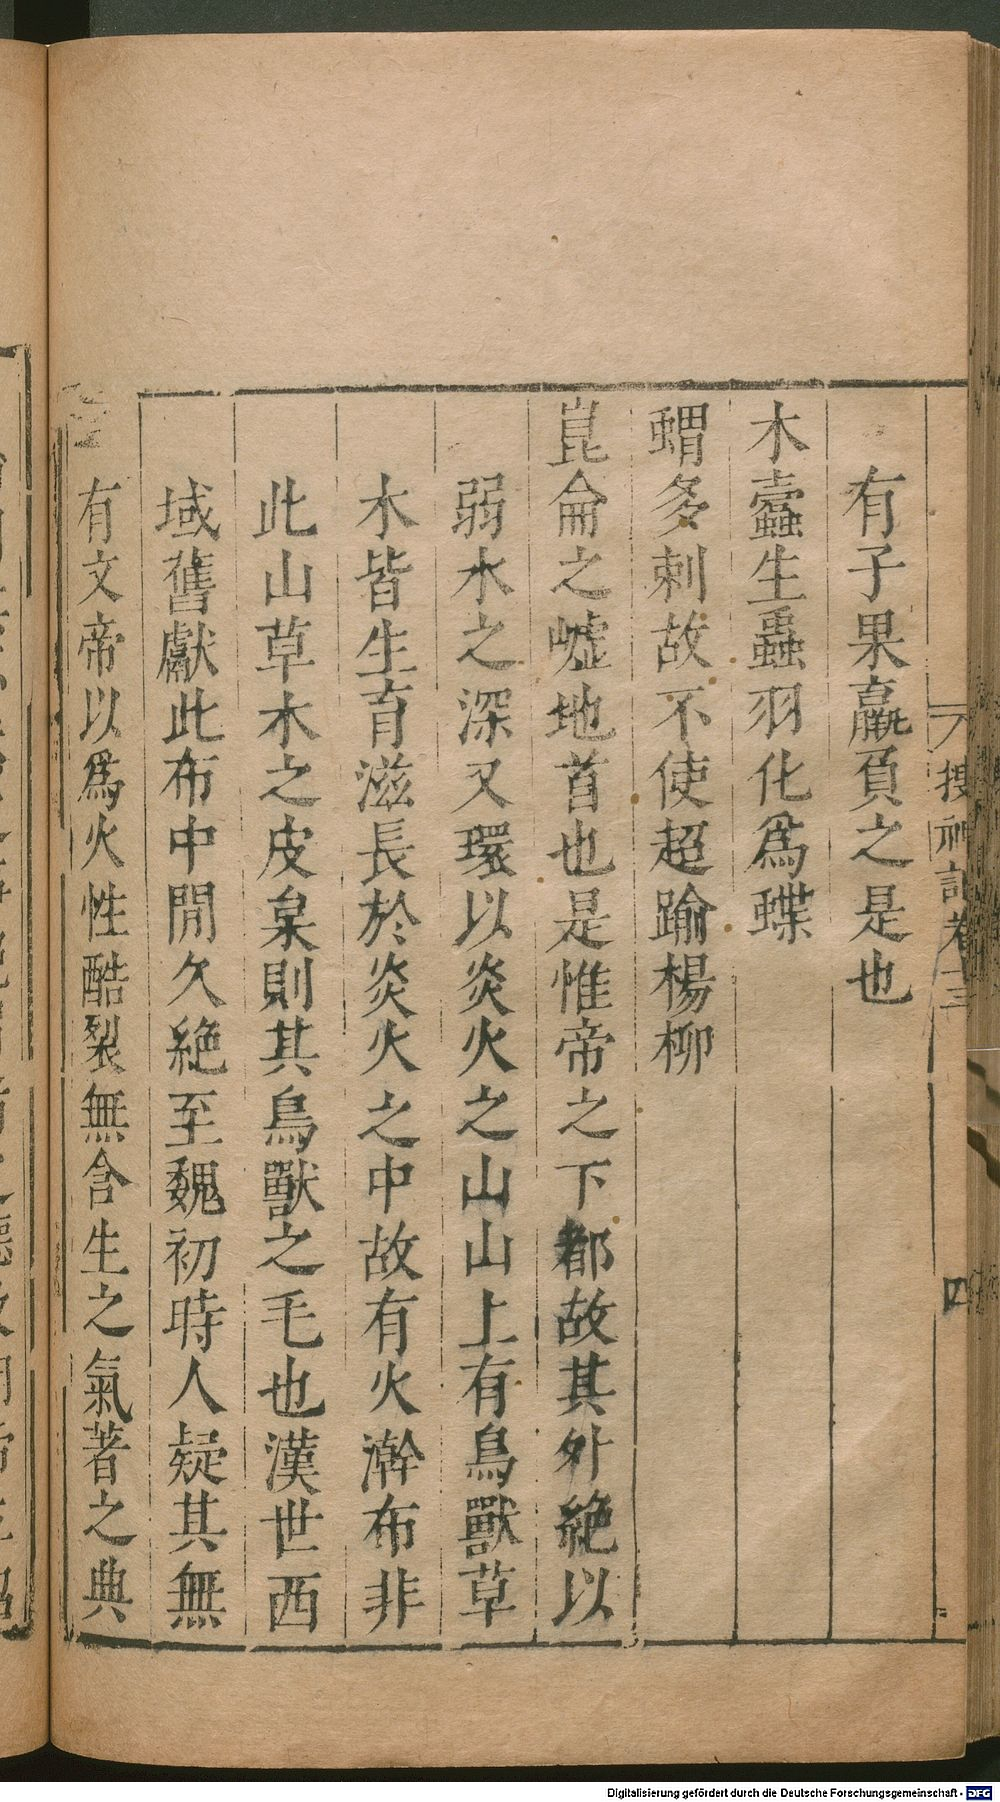 搜神記卷十三
四
有子果蠃負之是也
木蠹生蟲羽化爲蝶
蝟多刺故不使超踰楊柳
崑侖之墟地首也是惟帝之下都故其外絶以
弱水之深又環以炎火之山山上有鳥獸草
木皆生育滋長於炎火之中故有火澣布非
此山草木之皮枲則其鳥獸之毛也漢世西
域舊獻此布中閒久絶至魏初時人疑其無
有文帝以爲火性酷裂無含生之氣著之典
Digitalisierung gefördert durch die Deutsche Forschungsgemeinschaft - DFG